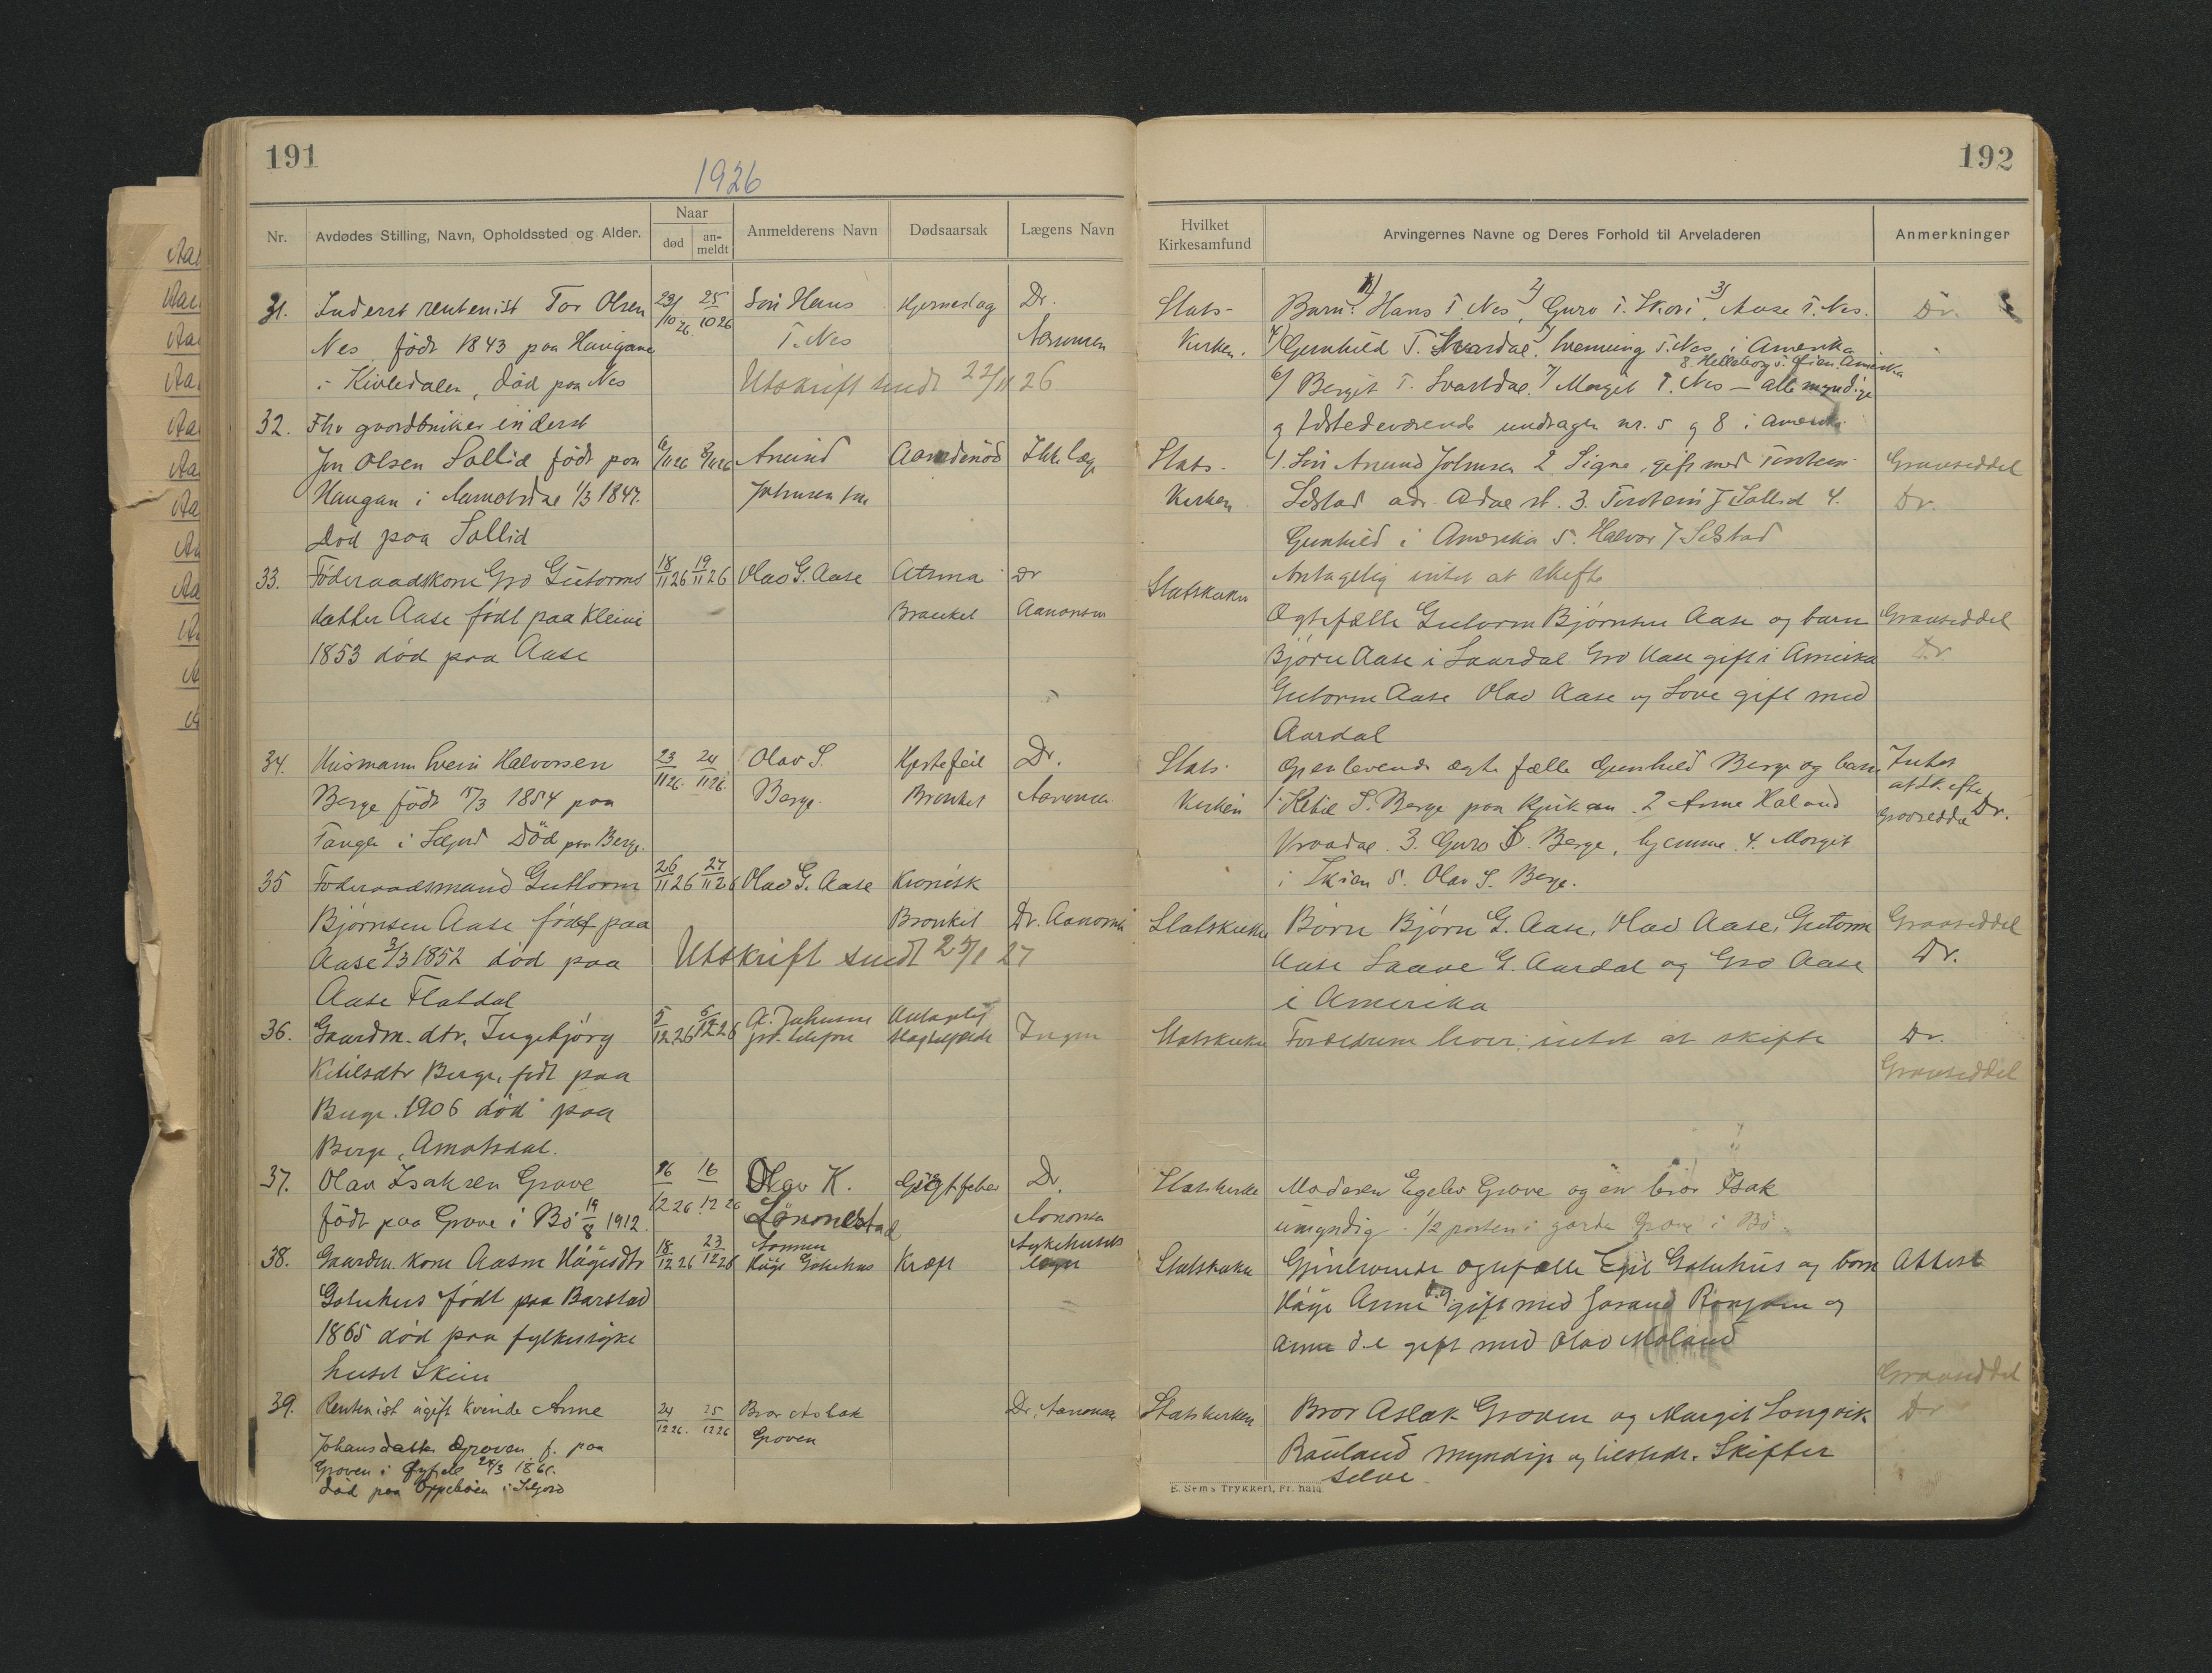 191
1926
Nr.
Avdødes Stilling, Navn, Opholdssted og Alder.
Naar
død
an-
meldt
Anmelderens Navn
Dødsaarsak
Lægens Navn
31. Inderst rentenist Tor Olsen 23/10 26 25/10 26 Søn Hans Hjerneslag Dr.
Nes, født 1843 paa Haugane T. Nes Aanonsen
i Kivledalen, død paa Nes Utskrift sendt 22/11 26
32. Fhv gaardbruker inderst
Jon Olsen Sollid født paa 6/11 26 8/11 26 Anund Aandenød Ikke læge
Haugan i Aamotsdal 1/3 1847. Johnsen
Død paa Sollid
33. Føderaadskone Gro Gutorms 18/11 26 19/11 26 Olav G. Aase Atsma Dr
datter Aase født paa Kleivi Bronket Aanonsen
1853 død paa Aase
34. Husmann Svein Halvorsen 23/11 26. 24/11 26. Olav S. Hjertefeil Dr.
Berge født /3 1854 paa Berge. Bronket Aanonsen
i Seljord Død paa Berge.
35 Føderaadsmand Guttorm 26/11 26 27/11 26 Olav G. Aase Kronisk
Bjørnsen Aase født paa Bronkit Dr. Aanonsen
Aase 3/3 1852 død paa Utskrift sendt 25/1 27
Aase Flatdal
36. Gaardm. dtr. Ingebjörg 5/12 26 5/12 26 Johnsen Antagelig Ingen
Ketilsdtr Berge, født paa
Berge. 1906 død paa
Berge, Amotsdal.
37. Olav Isaksen Grave 16/12 26 16/12 26 Olav K. Gigtfeber Dr.
født paa Grave i Bø 19/8 1912. Lønnestad Aanonsen
38. Gaardm. kone Aasne Hågesdtr 18/12 26 23/12 26 Sønnen Kræft Sykehusets
Gotuhus født paa Barstad Håge Gotuhus læger
1865 død paa fylkessyke
huset Skien
39. Rentenist ugift kvinde Anne 24/12 26. 25/12 26 Bror Aslak Dr. Aanonsen
Johansdatter Groven f. paa Groven
Groven i Øyfjell 24/3 186.
død paa Oppebøen i Seljord
192
Hvilket
Kirkesamfund
Arvingernes Navne og Deres Forhold til Arveladeren
Anmerkninger
Stats- Barn: 1) Hans T. Nes, 2) Guro T. Skori, 3) Aase T. Nes. Dr.
Kirken. 4) Gunhild T. Svardal. 5) Svenning T. Nes i Amerika
8. Helleborg i Amerika
6) Bergit T. Svartdal. 7) Margit T. Nes — alle myndige
og tilstedeværende undtagen nr. 5 og 8 i Amerika
Stats- 1. Søn Anund Johnsen 2. Signe, gift med Gravseddel
Kirken adr. st. 3. Torstein J Sollid 4. Dr.
Gunhild i Amerika 5. Halvor J
Statskirken Antagelig intet at skifte
Ægtefælle Gutorm Bjørnsen Aase og barn Gravseddel
Bjørn Aase i Laardal Gro Aase gift i Amerika Dr
Gutorm Aase Olav Aase og Love gift med
Aardal
Stats- Gjenlevende ægtefælle Gunhild Berge og barn Intet
at skifte
Kirken 1. Ketil S. Berge paa Rjukan. 2 Anne Haland Gravseddel Dr.
Vraadal. 3. Guro S. Berge, hjemme. 4. Margit
i Skien 5. Olav S. Berge.
Statskirken Børn Bjørn G. Aase, Olav Aase, Gutorm Gravseddel
Aase Laave G. Aardal og Gro Aase Dr.
i Amerika
Statskirken Forældrene lever, intet at skifte Dr.
Gravseddel
Statskirke Moderen Egelev Grave og en bror Isak
umyndig. 1/2 parten i garden Grave i Bø
Statskirken Gjenlevende ægtefælle Egil Gotuhus og barn Attest
Håge Anne d.y. gift med og
Anne d.e gift med Olav Moland
Gravseddel
Statskirken Bror Aslak Groven og Margit Songvik Dr
Rauland myndige og tilstede. Skifter
selve
E. Sem's Trykkeri, Fr. hald.